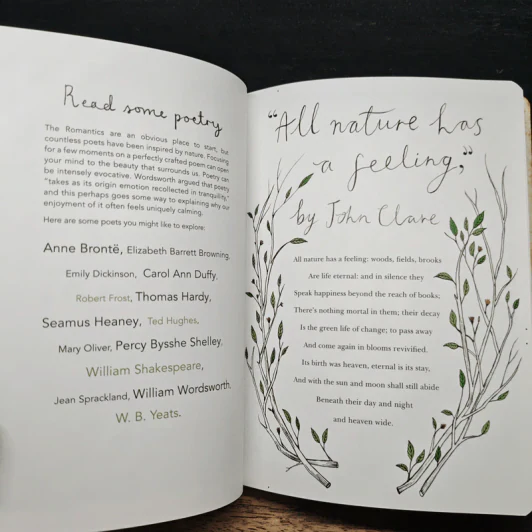 Read some poetry
The Romantics are an obvious place to start, but
countless poets have been inspired by nature. Focusing
for a few moments on a perfectly crafted poem can open
your mind to the beauty that surrounds us. Poetry can
be intensely evocative. Wordsworth argued that poetry
"takes as its origin emotion recollected in tranquility,"
and this perhaps goes some way to explaining why our
enjoyment of it often feels uniquely calming.
Here are some poets you might like to explore:
Anne Brontë, Elizabeth Barrett Browning,
Emily Dickinson, Carol Ann Duffy,
Robert Frost, Thomas Hardy,
Seamus Heaney, Ted Hughes,
Mary Oliver, Percy Bysshe Shelley,
William Shakespeare,
Jean Sprackland, William Wordsworth,
W. B. Yeats.
"All nature has
a feeling,"
by John Clare
All nature has a feeling: woods, fields, brooks
Are life eternal: and in silence they
Speak happiness beyond the reach of books;
There's nothing mortal in them; their decay
Is the green life of change; to pass away
And come again in blooms revivified.
Its birth was heaven, eternal is its stay,
And with the sun and moon shall still abide
Beneath their day and night
and heaven wide.